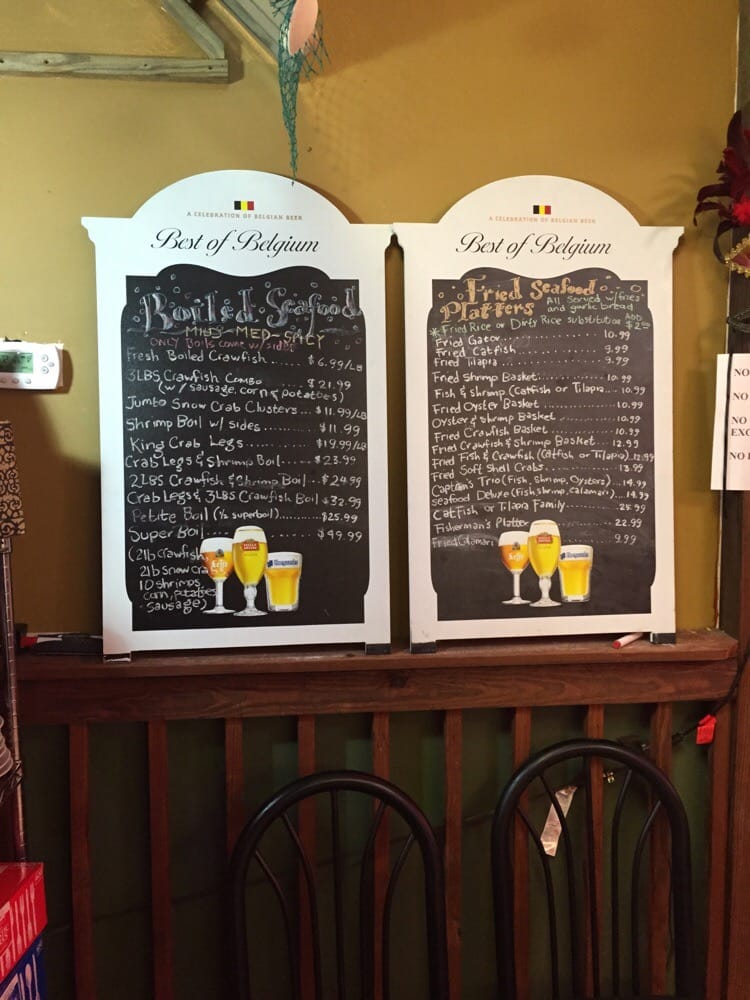 A CELEBRATION OF BELGIAN BEER
Best of Belgium
Boiled Seafood
MILD-MED-SPICY
ONLY Boils come w/sides
Fresh Boiled Crawfish..... $6.99/LB
3LBS Crawfish Combo ..... $21.99
(w/ sausage, corn & potatoes)
Jumbo Snow Crab Clusters... $11.99/LB
Shrimp Boil w/ sides........ $11.99
King Crab Legs........ $19.99/LB
Crab Legs & Shrimp Boil.... $23.99
2LBS Crawfish & Shrimp Boil.. $24.99
Crab Legs & 3LBS Crawfish Boil.. $32.99
Petite Boil (½ superboil)....... $25.99
Super Boil...... $49.99
(2lb crawfish
2lb snow cra
10 shrimps
corn, potatoes
sausage)
A CELEBRATION OF BELGIAN BEER
Best of Belgium
Fried Seafood
Platters
All served w/fries
and garlic bread
*Fried Rice or Dirty Rice substitution ADD
Fried Gator.......... 10.99
Fried Catfish......... 9.99
Fried Tilapia......... 9.99
Fried Shrimp Basket....... 10.99
Fish & shrimp (Catfish or Tilapia... 10.99
Fried Oyster Basket....... 10.99
Oyster & shrimp Basket....... 10.99
Fried Crawfish Basket....... 10.99
Fried Crawfish & Shrimp Basket.... 12.99
Fried Fish & Crawfish (Catfish or Tilapia).12.99
Fried Soft Shell Crabs....... 13.99
Captain's Trio (Fish, Shrimp, Oysters).. 14.99
seafood Deluxe (Fish, shrimp, calamari).. 14.99
Catfish or Tilapia Family....... 25.99
Fisherman's Platter........ 22.99
Fried Calamari 9.99
NO
NO
NO
EXC